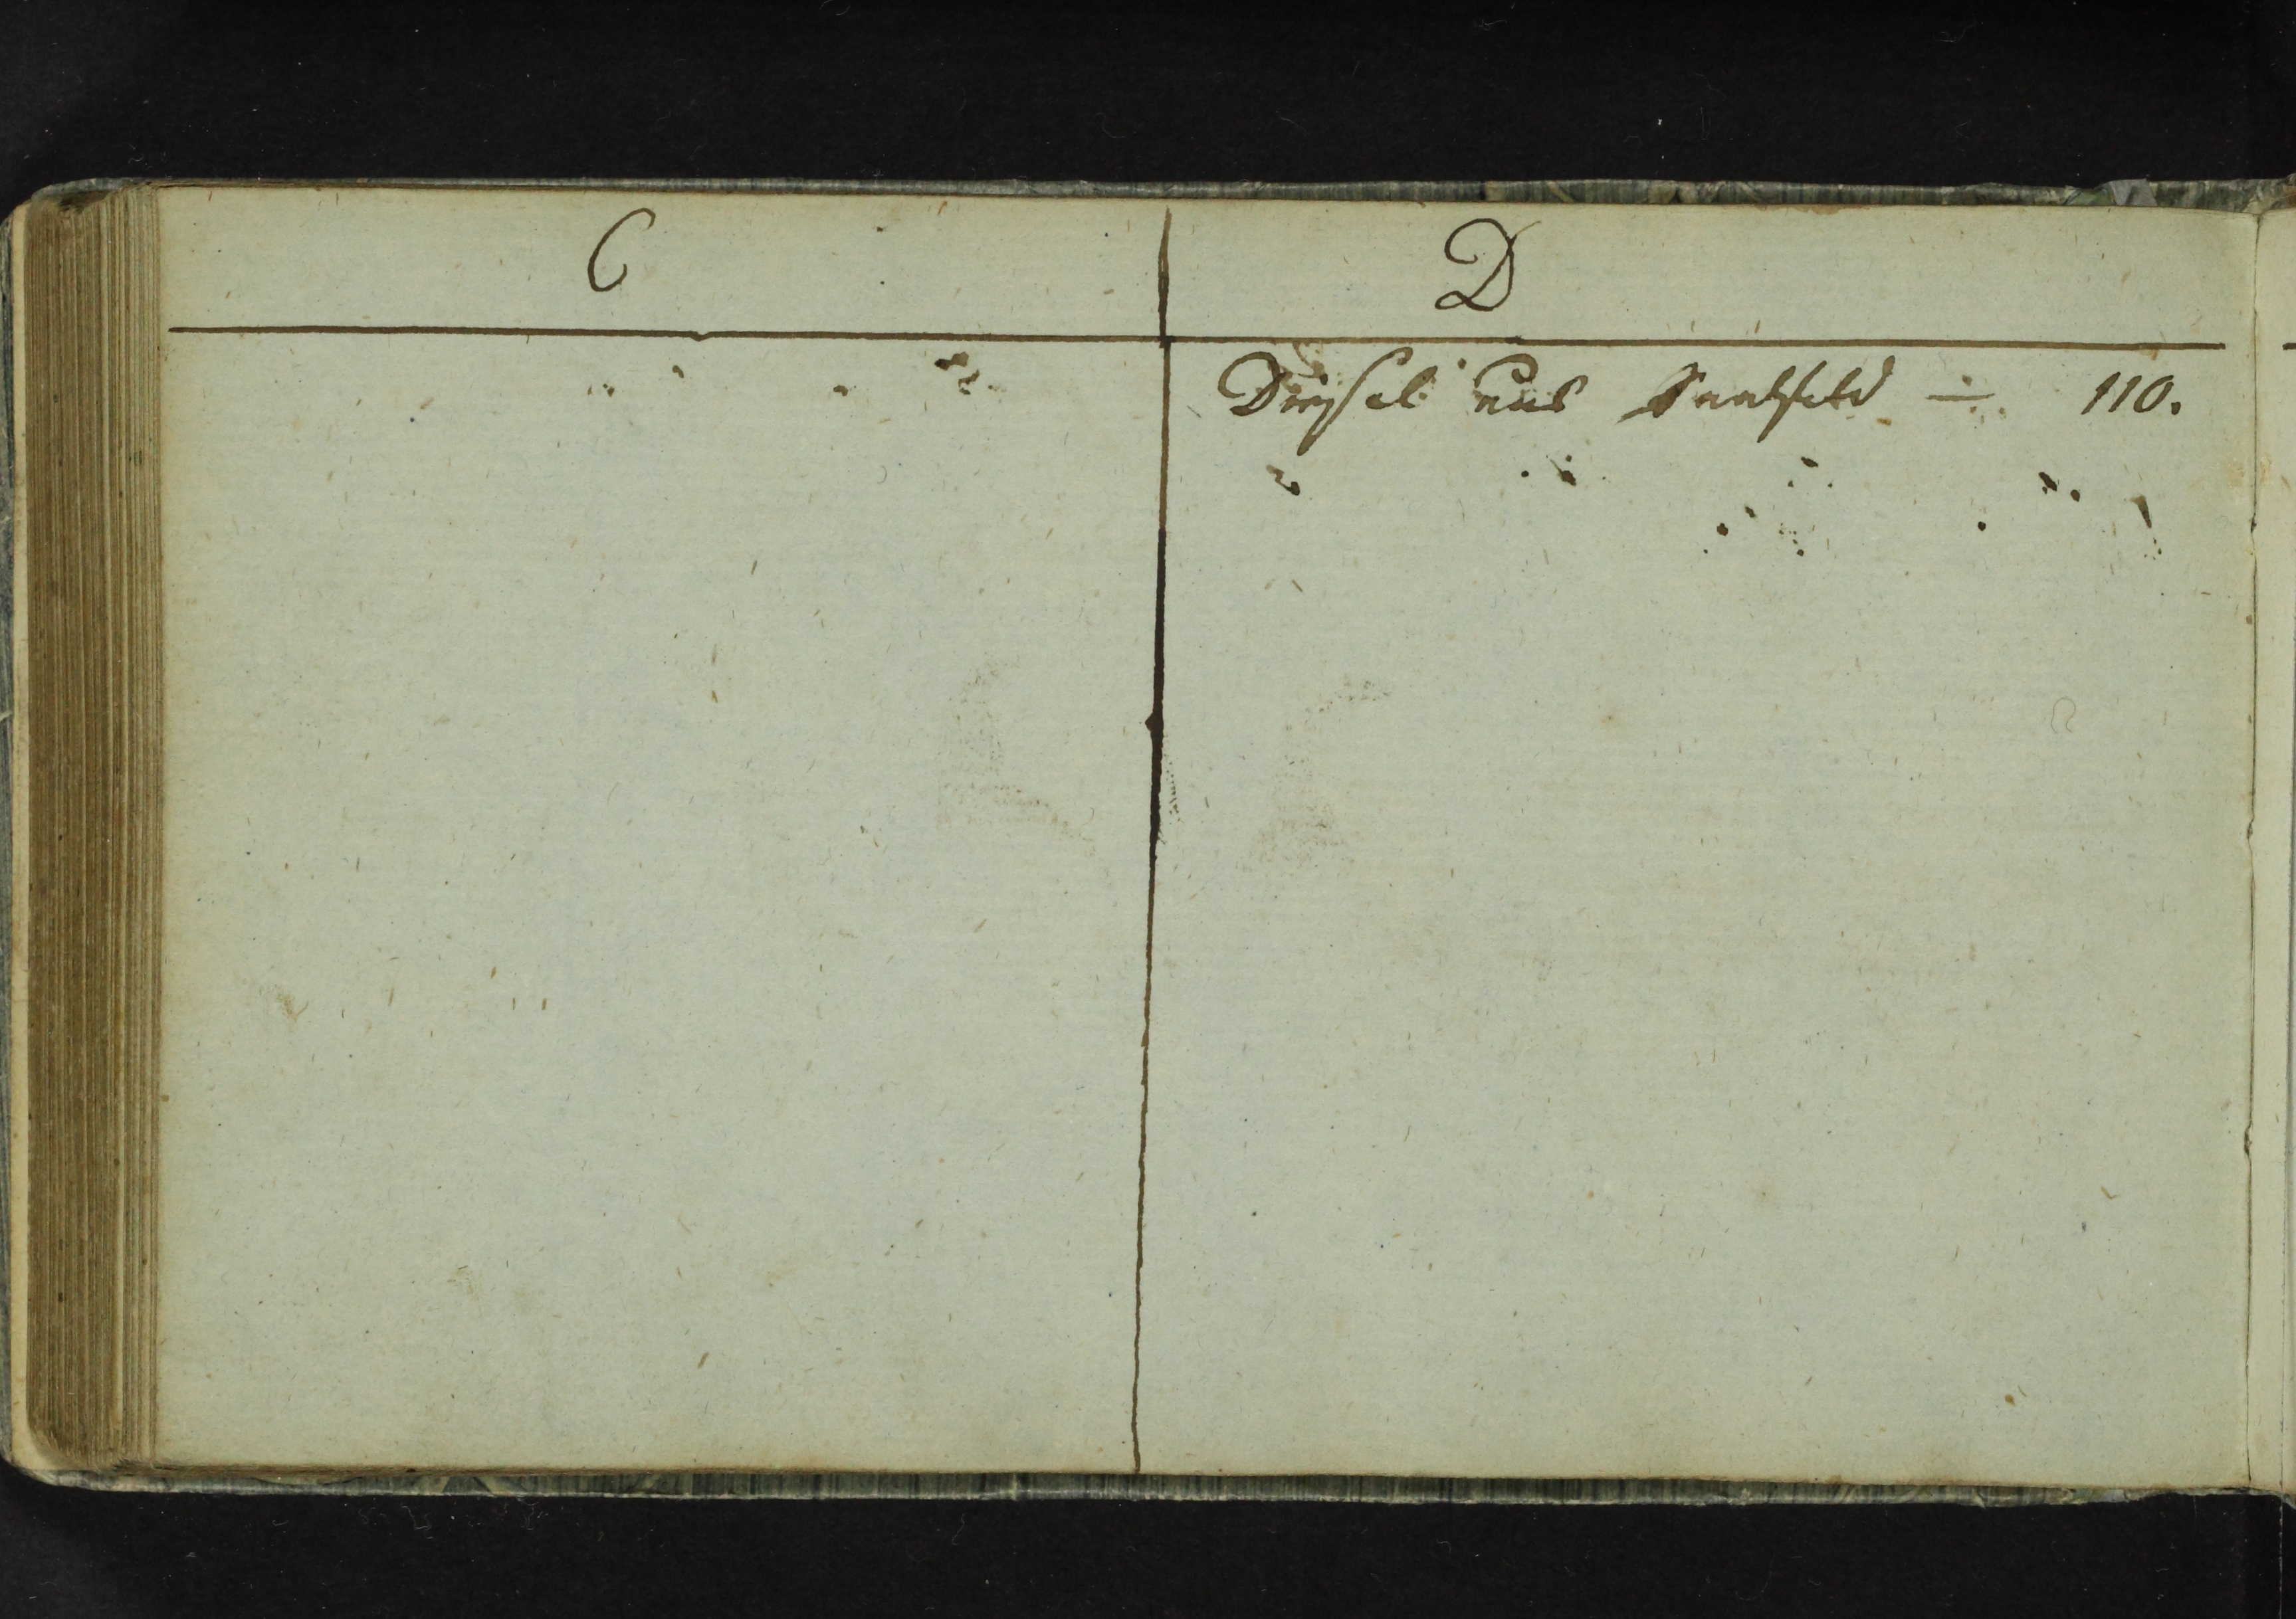 C
D
Dreysel aus Saalfeld — 110.